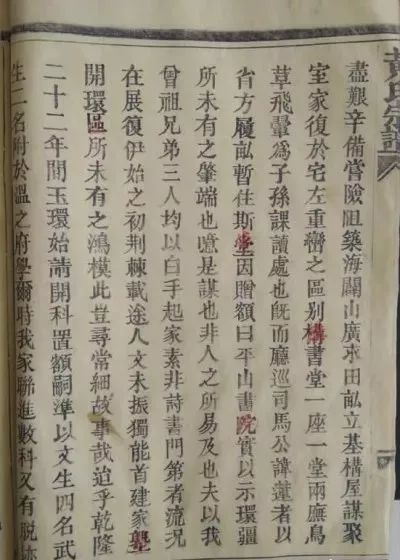 黃氏宗譜
盡艱辛備嘗險阻築海闢山廣求田畝立基構屋謀聚
室家復於宅左重巒之區別構書堂一座一堂兩廡鳥
草飛翬為子孫課讀處也既而廳巡司馬公諱蓮者以
省方履畝暫住斯堂因贈額曰平山書院實以示環疆
所未有之肇端也噫是謀也非人之所易及也夫以我
曾祖兄弟三人均以白手起家素非詩書門第者流況
在展復伊始之初荆棘載途人文未振獨能首建家塾
開環區所未有之鴻模此豈尋常細故事哉迨乎乾隆
二十二年間玉環始請開科置額嗣準以文生四名武
生二名附於溫之府學爾時我家聯進數科又有脫